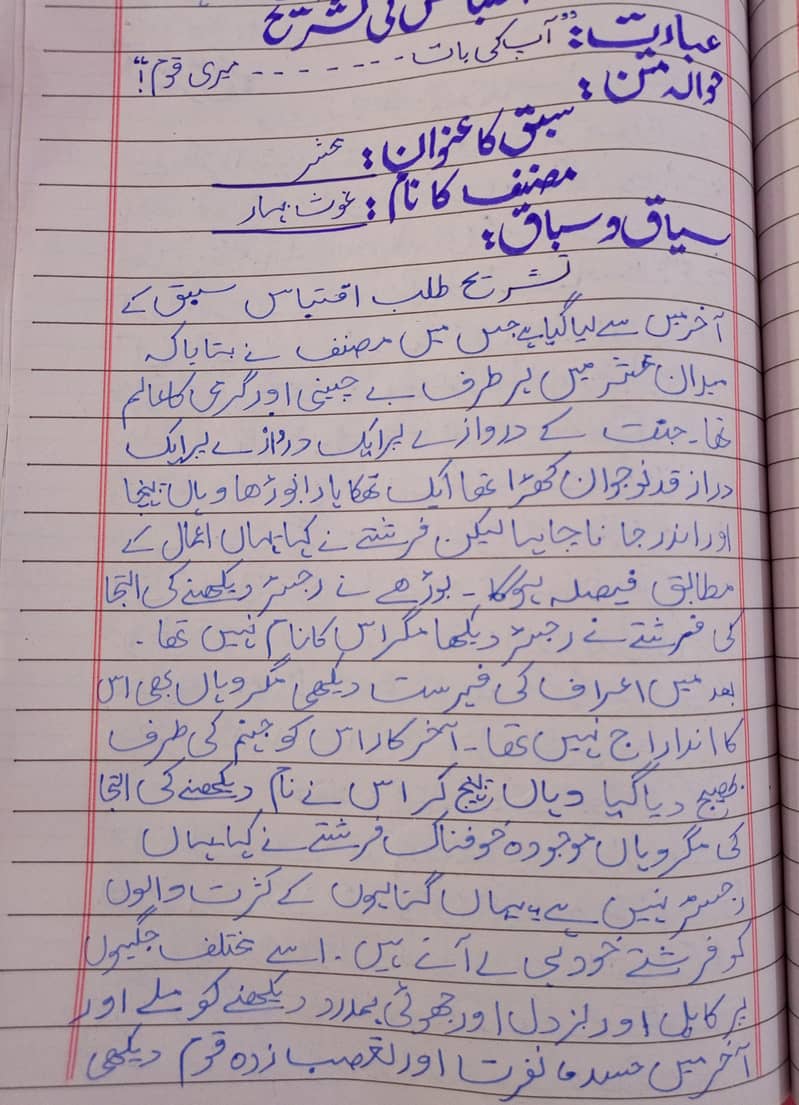 کی تشریح
عبارت: "آپ کی بات - - - - - - - میری قوم!"
حوالہ متن:
سبق کا عنوان: حشر
مصنف کا نام: غوث بہار
سیاق و سباق:
تشریح طلب اقتباس سبق کے
آخر میں سے لیا گیا ہے جس میں مصنف نے بتایا کہ
میدان حشر میں ہر طرف بے چینی اور گرمی کا عالم
تھا۔ جنت کے دروازے پر ایک دروازے پر ایک
دراز قد نوجوان کھڑا تھا ایک تھکا ہارا بوڑھا وہاں پہنچا
اور اندر جانا چاہا لیکن فرشتے نے کہا یہاں اعمال کے
مطابق فیصلہ ہوگا۔ بوڑھے نے رجسٹر دیکھنے کی التجا
کی فرشتے نے رجسٹر دیکھا مگر اس کا نام نہیں تھا۔
بعد میں اعراف کی فہرست دیکھی مگر وہاں بھی اس
کا اندراج نہیں تھا۔ آخر کار اس کو جہنم کی طرف
بھیج دیا گیا وہاں پہنچ کر اس نے نام دیکھنے کی التجا
کی مگر وہاں موجودہ خوفناک فرشتے نے کہا یہاں
رجسٹر نہیں ہے یہاں گناہوں کے کثرت والوں
کو فرشتے خود ہی لے آتے ہیں۔ اسے مختلف جگہوں
پر کاہل اور بزدل اور جھوٹی ہمدرد دیکھنے کو ملے اور
آخر میں حسد، نفرت اور تعصب زدہ قوم دیکھی